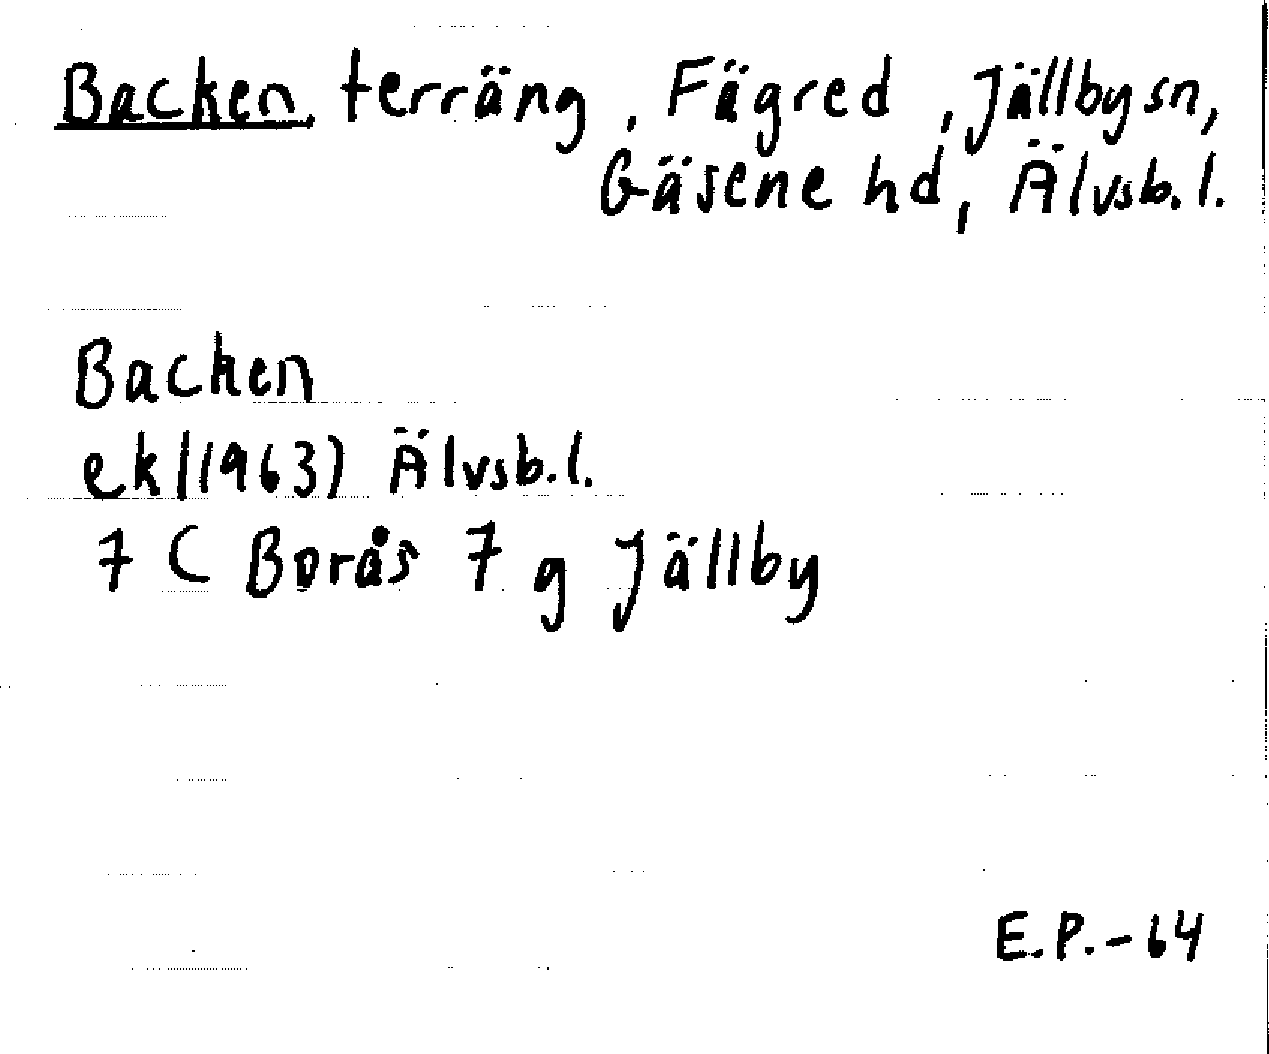 Backen, terräng, Fägred, Jällby sn,
Gäsene hd, Älvsb. l.
Backen
ek (1963) Älvsb. l.
7 C Borås 7 g Jällby
E.P.-64